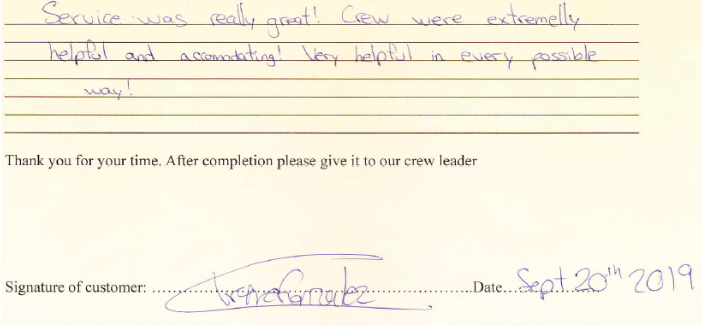 Service was really great! Crew were extremelly
helpful and accomodating! Very helpful in every possible
way!
Thank you for your time. After completion please give it to our crew leader
Signature of customer: ..... Date... Sept 20th 2019